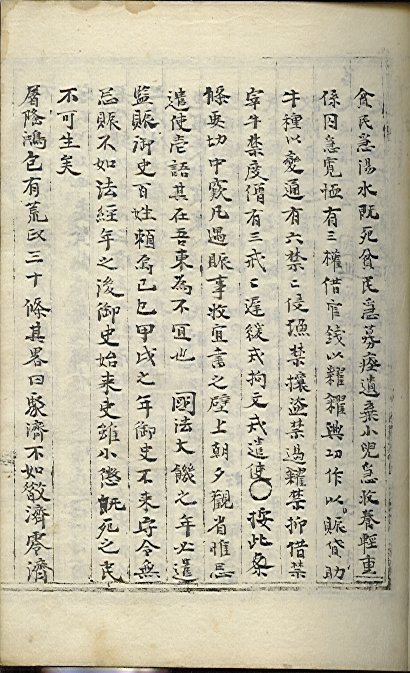 貧民急湯水既死貧民急募瘞遺棄小兒急收養輕重
係囚急寬恤有三權借官錢以糶糴興工作以賑貸助
牛種以變通有六禁〻侵漁禁攘盜禁遏糴禁抑借禁
宰牛禁度僧有三戒〻遲緩戒拘文戒遣使〇按此条
條要切中窾凡遇賑事牧宜書之壁上朝夕觀省惟忌
遣使壱語其在吾東為不宜也 國法大饑之年必遣
監賑御史百姓頼焉己巳甲戌之年御史不来守令無
忌賑不如法經年之後御史始来吏雖小懲既死之民
不可生矣
屠隆鴻包有荒政三十條其畧曰聚濟不如散濟零濟